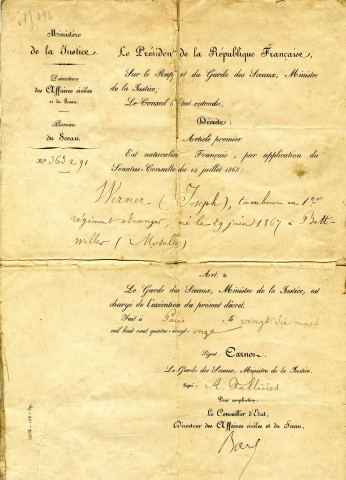 Ministère
de la Justice.
Direction
des Affaires civiles
et du Sceau.
Bureau
du Sceau.
N° 363 x 91
Le Président de la République Française,
Sur le Rapport du Garde des Sceaux, Ministre
de la Justice;
Le Conseil d'Etat entendu,
Décrète:
Article premier
Est naturalisé Français, par application du
Senatus-Consulte du 14 juillet 1865:
Werner (Joseph), tambour au 1er
régiment étranger, né le 29 juin 1867 à Bett-
willer (Moselle)
Art. 2.
Le Garde des Sceaux, Ministre de la Justice, est
chargé de l'exécution du présent décret.
Fait à Paris le vingt dix mars
mil huit cent quatre-vingt-onze
Signé: Carnot
Le Garde des Sceaux, Ministre de la Justice.
Signé: A. Fallières
Pour ampliation:
Le Conseiller d'Etat,
Directeur des Affaires civiles et du Sceau,